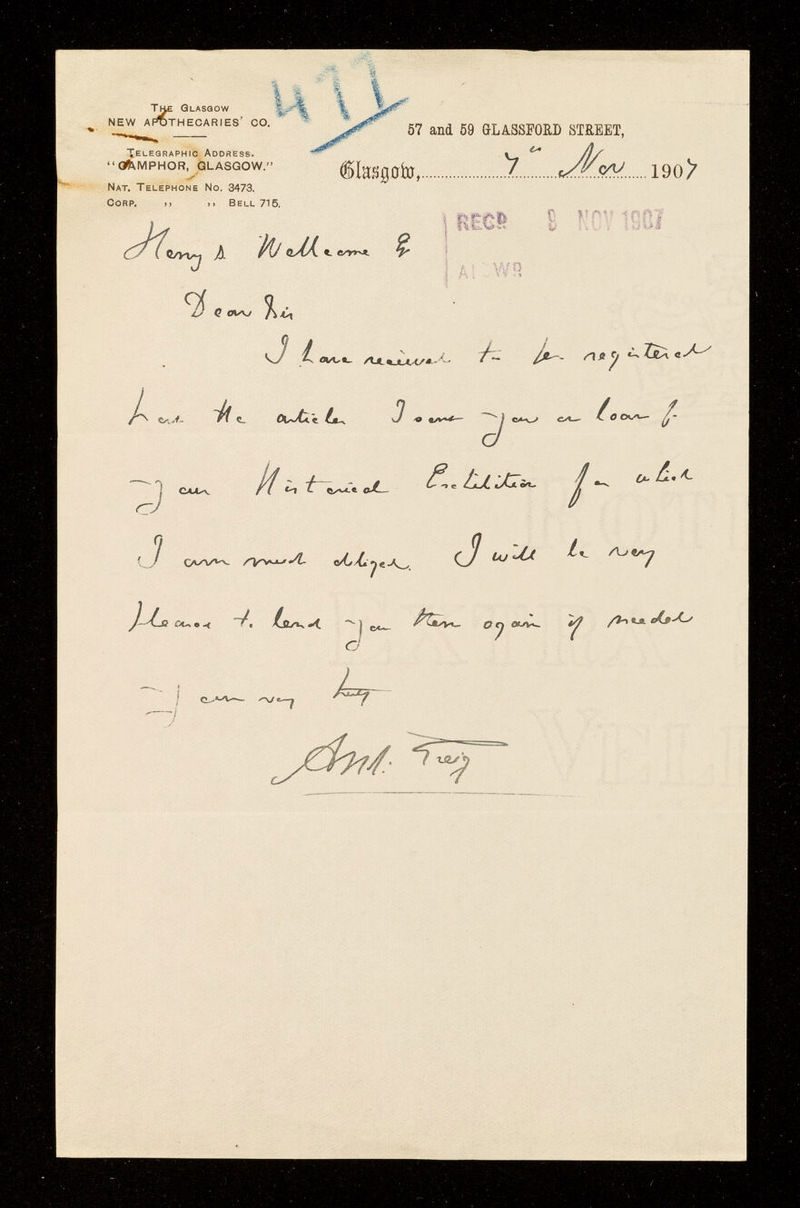 477
THE GLASGOW
NEW APOTHECARIES' CO.
TELEGRAPHIC ADDRESS.
"CAMPHOR, GLASGOW."
NAT. TELEPHONE No. 3473.
CORP. ,, ,, BELL 715.
57 and 59 GLASSFORD STREET,
Glasgow, 7th Nov 1907
RECD 9 NOV 1907
ANSWD
Henry S Wellcome E
Dear Sir
I have received to be registered
the articles I sent you on loan for
your Historical Exhibition for which
I am much obliged. I will be very
pleased to lend you them again if needed
Yours very truly
Greig